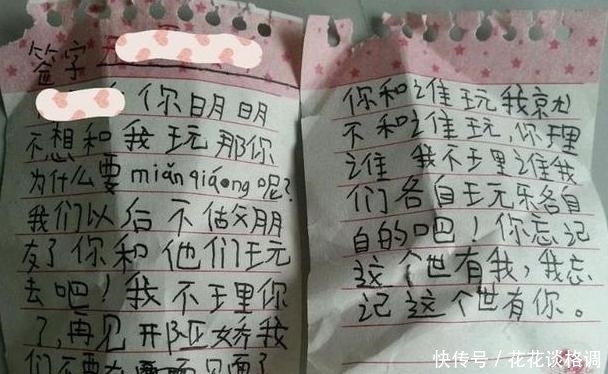 签字
你明明
不想和我玩那你
为什么要miǎnqiáng呢?
我们以后不做朋
友了你和他们玩
去吧!我不理你
了,再见
们不要在 面见面了
你和谁玩我就
不和谁玩,你理
谁 我不理谁我
们各自玩乐各自
自的吧!你忘记
这个世有我,我忘
记这个世有你。
快传号/花花谈格调